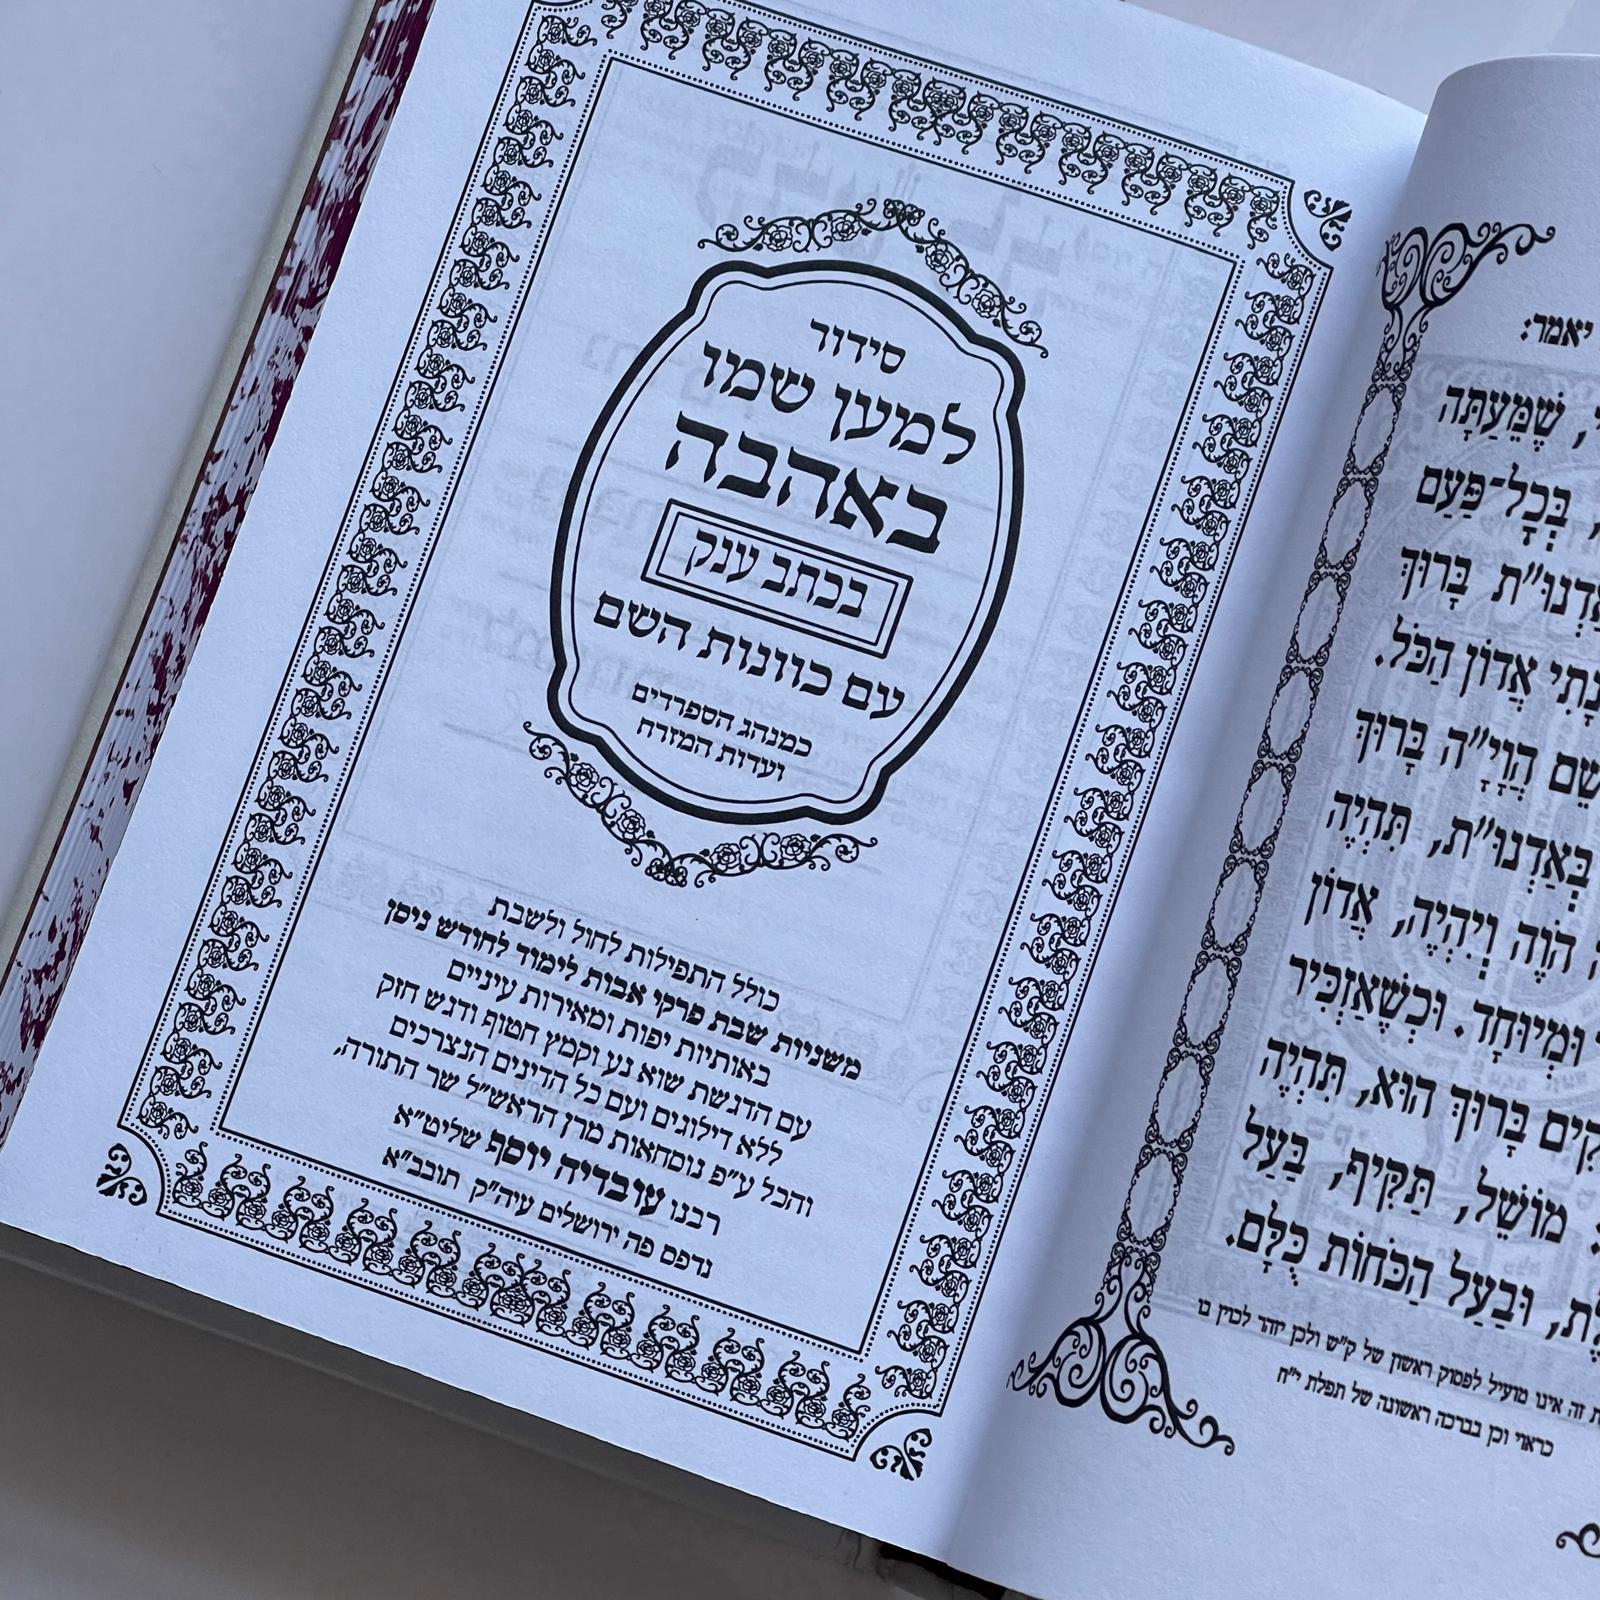 סידור
למען שמו
באהבה
בכתב ענק
עם כוונות השם
כמנהג הספרדים
ועדות המזרח
כולל התפילות לחול ולשבת
משניות שבת פרקי אבות לימוד לחודש ניסן
באותיות יפות ומאירות עיניים
עם הדגשת שוא נע וקמץ חטוף ודגש חזק
ללא דילוגים ועם כל הדינים הנצרכים
והכל ע״פ נוסחאות מרן הראש״ל שר התורה,
רבנו עובדיה יוסף שליט״א
נדפס פה ירושלים עיה״ק תובב״א
יאמר:
שֶׁמֵּעַתָּה
בְּכָל־פַּעַם
בָּרוּךְ
אֲדוֹן הַכֹּל.
הֲוָיָ״ה בָּרוּךְ
בְּאַדְנוּ״ת, תִּהְיֶה
הֹוֶה וְיִהְיֶה, אֲדוֹן
וּמְיוּחָד. וּכְשֶׁאַזְכִּיר
בָּרוּךְ הוּא, תִּהְיֶה
מוֹשֵׁל, תַּקִּיף, בַּעַל
וּבַעַל הַכֹּחוֹת כֻּלָּם.
זה אינו מועיל לפסוק ראשון של ק״ש ולכן יזהר לכוין
כראוי וכן בברכה ראשונה של תפלת י״ח